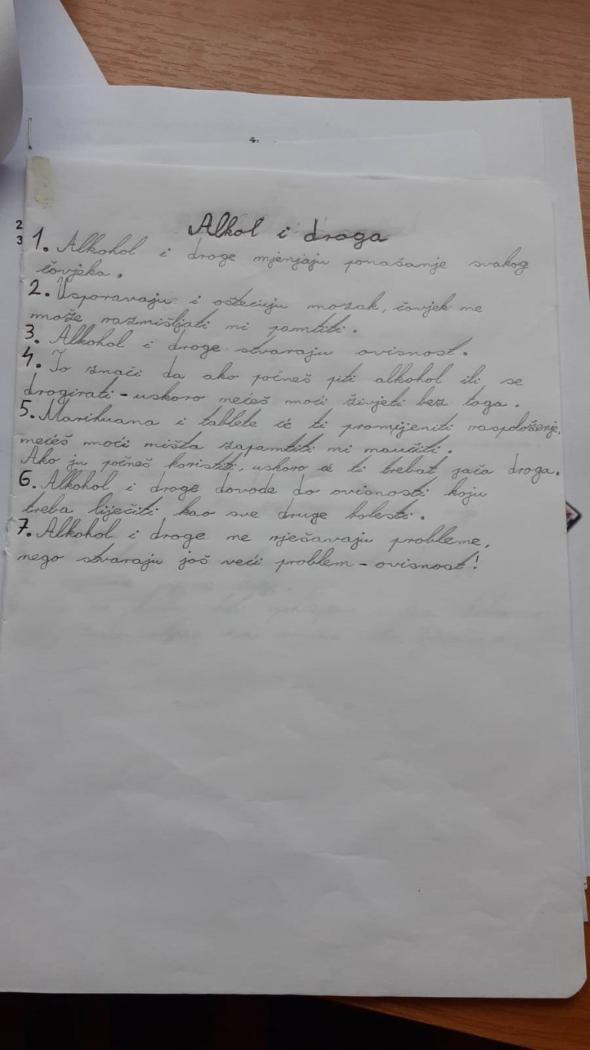 4.
2
3
Alkol i droga
1. Alkohol i droge mjenjaju ponašanje svakog
čovjeka.
2. Usporavaju i oštećuju mozak, čovjek ne
može razmišljati ni pamtiti.
3. Alkohol i droge stvaraju ovisnost.
4. To znači da ako počneš piti alkohol ili se
drogirati - uskoro nećeš moći živjeti bez toga.
5. Marihuana i tablete će ti promijeniti raspoloženje,
nećeš moći ništa zapamtiti ni naučiti.
Ako ju počneš koristiti, uskoro će ti trebat jača droga.
6. Alkohol i droge dovode do ovisnosti koju
treba liječiti kao sve druge bolesti.
7. Alkohol i droge ne rješavaju probleme,
nego stvaraju još veći problem - ovisnost!